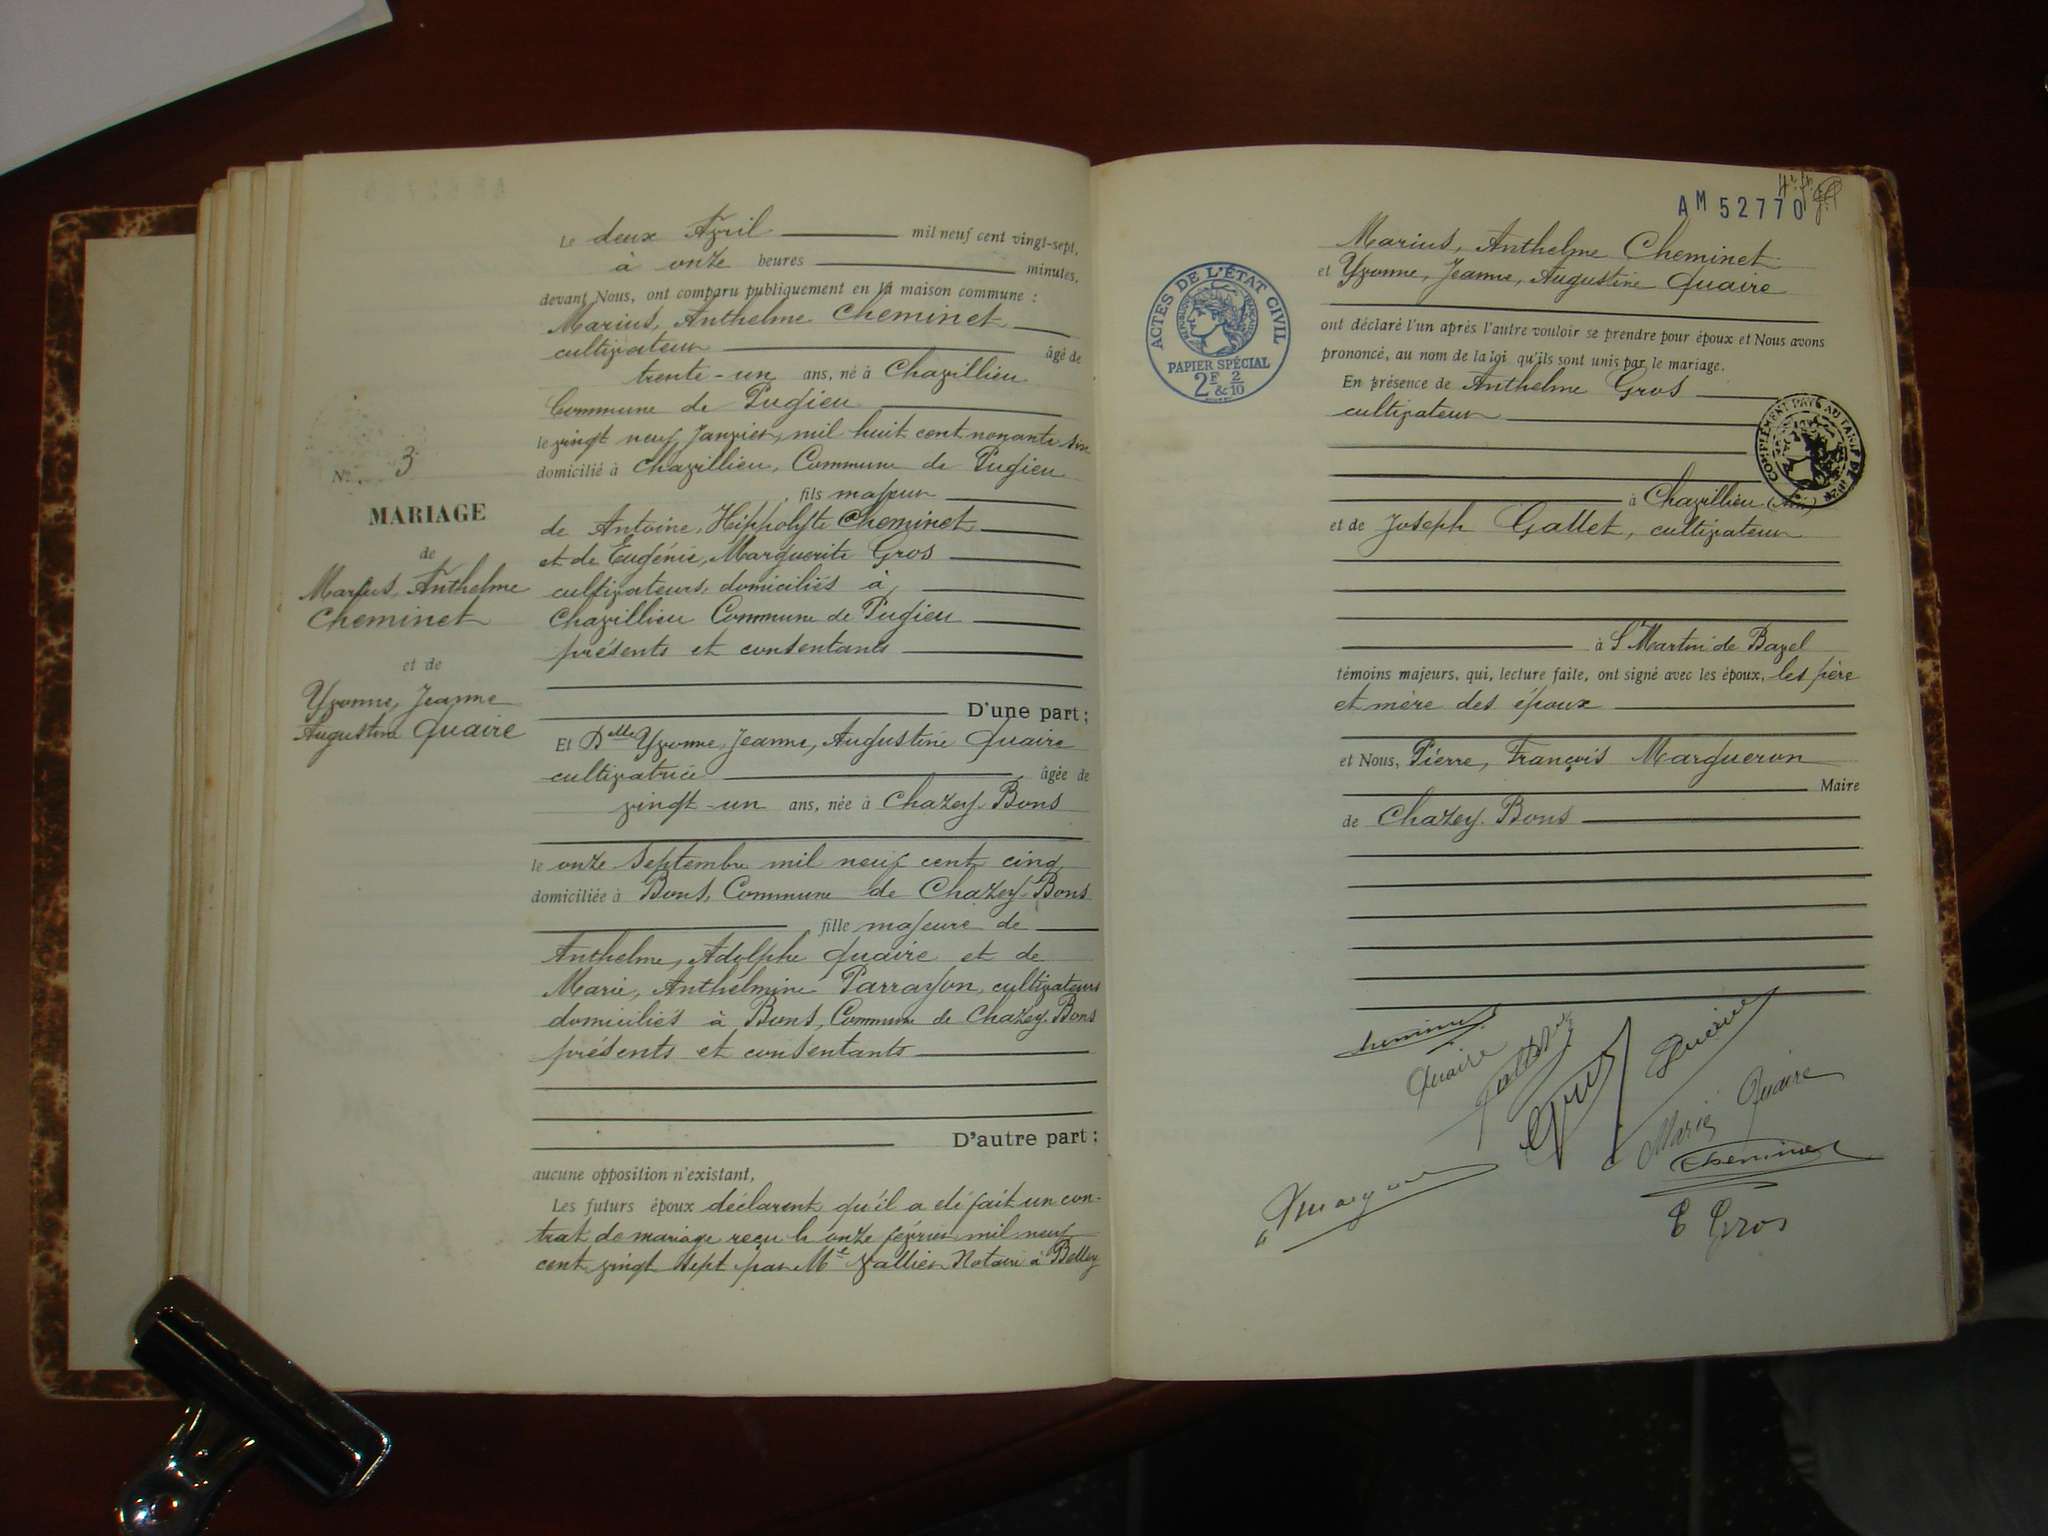 Le deux Avril mil neuf cent vingt-sept,
à onze heures minutes,
devant Nous, ont comparu publiquement en la maison commune :
Marius, Anthelme Cheminet
cultivateur âgé de
trente-un ans, né à Chavillieu
Commune de Pugieu
le vingt neuf Janvier, mil huit cent nonante six
domicilié à Chavillieu, Commune de Pugieu
, fils majeur
de Antoine, Hippolyte Cheminet
et de Eugénie, Marguerite Gros
cultivateurs, domiciliés à
Chavillieu Commune de Pugieu
présents et consentants
D'une part ;
Et Delle Yvonne, Jeanne, Augustine Quaire
cultivatrice âgée de
vingt-un ans, née à Chazey-Bons
le onze Septembre mil neuf cent cinq
domiciliée à Bons, Commune de Chazey-Bons
fille majeure de
Anthelme, Adolphe Quaire et de
Marie, Anthelmine Parrayon, cultivateurs
domiciliés à Bons, Commune de Chazey-Bons
présents et consentants
D'autre part ;
aucune opposition n'existant,
Les futurs époux déclarent qu'il a été fait un con-
trat de mariage reçu le onze février mil neuf
cent vingt sept par Me Vallier Notaire à Belley
No 3
MARIAGE
de
Marius, Anthelme
Cheminet
et de
Yvonne, Jeanne
Augustine Quaire
AM 52770
ACTES DE L'ÉTAT CIVIL
RÉPUBLIQUE FRANÇAISE
PAPIER SPÉCIAL
2F & 2/10
Marius, Anthelme Cheminet
et Yvonne, Jeanne, Augustine Quaire
ont déclaré l'un après l'autre vouloir se prendre pour époux et Nous avons
prononcé, au nom de la loi qu'ils sont unis par le mariage.
En présence de Anthelme Gros
cultivateur
COMPLÉMENT PAYÉ AU TARIF DE
à Chavillieu (Ain)
et de Joseph Gallet, cultivateur
à St Martin de Bavel
témoins majeurs, qui, lecture faite, ont signé avec les époux, les père
et mère des époux
et Nous, Pierre, François Margueron
Maire
de Chazey-Bons
Cheminet
Quaire
Gallet
Gros
Quaire
Marie Quaire
Cheminet
E Gros